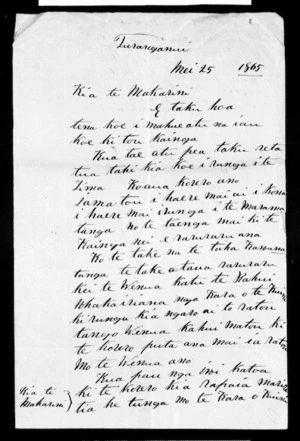 Turanganui
Mei 25 1865
Kia te Makarini
E taku hoa
tena koe i mahue atu na i au
koe ki tou kainga
Kua tae atu pea taku reta
tua tahi kia koe i runga i te
Tima Ko aua korero ano
tou i haere mai ai i kona
i haere mai i runga i te Marama
tanga no te taenga mai ki te
Kainga nei e raruraru ana
Ko te take na te tuka
tunga te take o taua raruraru
kei te Wenua katu te Kahui
Whakairinana nga Kara o te Kuini
ki runga kia ngaro ai to ratou
tango Wenua kahui matou ki
te korero puta ana mai i a ratou
Mo te Wenua ano
Kua pau nga iwi katoa
ki te korero kia rapaia marire
tia he tunga mo te Kara o Kuini
Kia te
Makarini